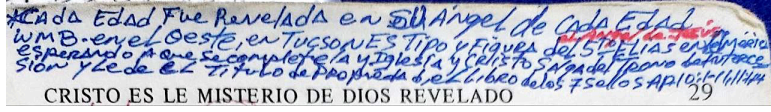 *Cada Edad Fue Revelada en Su Angel de Cada Edad
WMB. en el Oeste, en Tucson Es Tipo y Figura del 5to Elias en
esperando A que se complete la Iglesia y Cristo Salga del Trono de Interce
sion y Le de EL Titulo de Propiedad del Libro de los 7 sellos AP.10:1-11,
CRISTO ES LE MISTERIO DE DIOS REVELADO 29